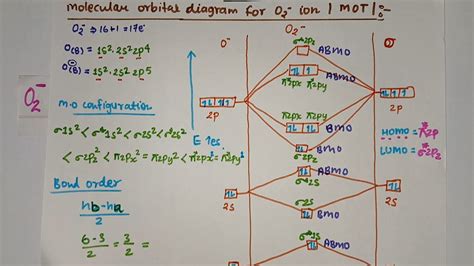 molecular orbital diagram for O2⁻ ion | MOT | :-
O2⁻ ⇒ 16+1 = 17e⁻
O(8) = 1s², 2s² 2p4
O⁻(8) = 1s², 2s² 2p5
O2⁻
m.o configuration
σ1s² < σ*1s² < σ2s² < σ*2s²
< σ2Pz² < π2Px² = π2Py² < π*2Px² = π*2Py¹
Bond order
nb-na
2
6-3
2
= 3/2 =
E↑es
O⁻
O2⁻
O
σ*2Pz
ABMO
π*2px π*2py
ABMO
2P
2P
π2px π2py
BMO
σ2Pz
BMO
σ*2S
ABMO
2S
2S
σ2S
BMO
σ*1S
ABMO
HOMO = π*2P
LUMO = σ*2Pz